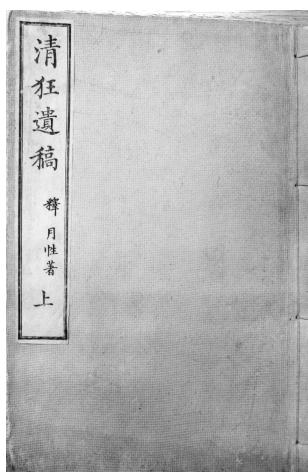 清狂遺稿 釋月性著 上